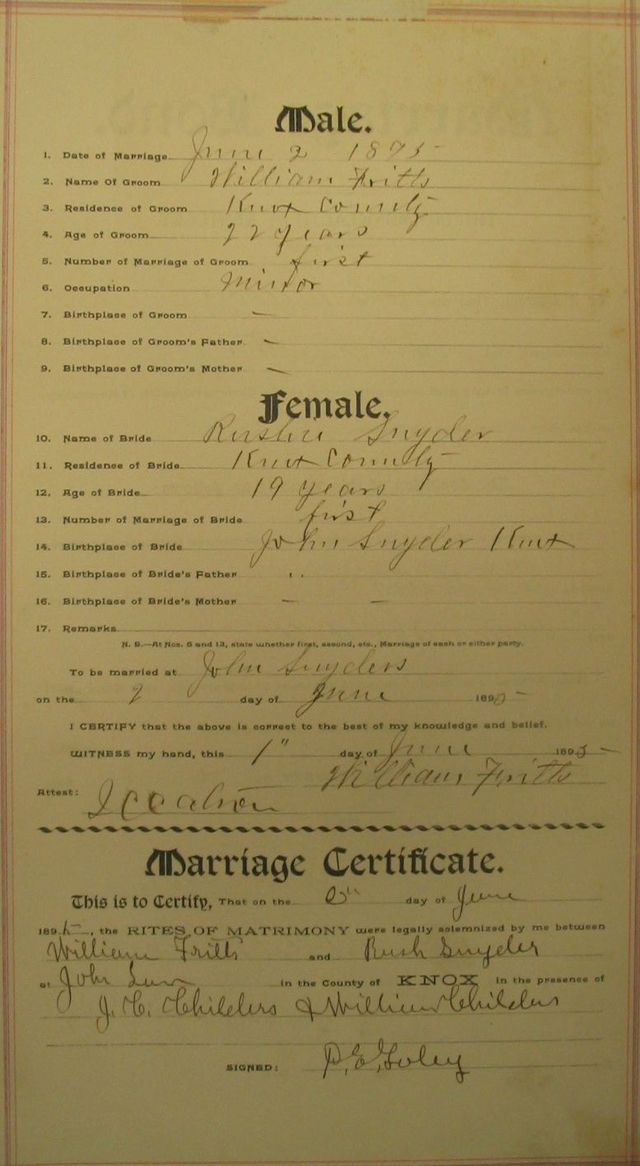 Male.
1. Date of Marriage June 2 1895
2. Name Of Groom William Fritts
3. Residence of Groom Knox County
4. Age of Groom 22 years
5. Number of Marriage of Groom first
6. Occupation Minor
7. Birthplace of Groom —
8. Birthplace of Groom's Father —
9. Birthplace of Groom's Mother —
Female.
10. Name of Bride Snyder
11. Residence of Bride Knox County
12. Age of Bride 19 years
13. Number of Marriage of Bride first
14. Birthplace of Bride John Snyder Knox
15. Birthplace of Bride's Father "
16. Birthplace of Bride's Mother — —
17. Remarks
N. B.—At Nos. 5 and 13, state whether first, second, etc., Marriage of each or either party.
To be married at John Snyders
on the 2 day of June 1895
I CERTIFY that the above is correct to the best of my knowledge and belief.
WITNESS my hand, this 1" day of June 1895
William Fritts
Attest:
Marriage Certificate.
This is to Certify, That on the day of June
1895, the RITES OF MATRIMONY were legally solemnized by me between
William Fritts and Rush Snyder
at John in the County of KNOX in the presence of
J. C. Childers & William Childers
SIGNED: